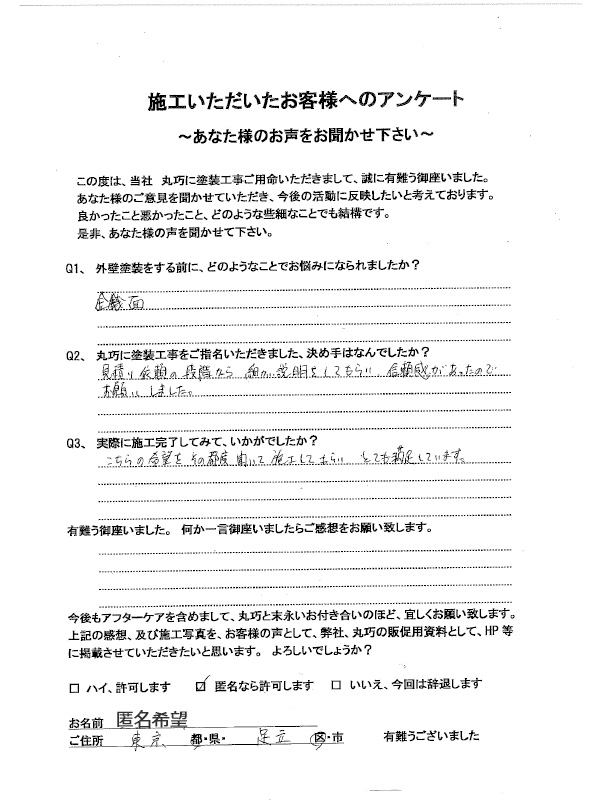 施工いただいたお客様へのアンケート
～あなた様のお声をお聞かせ下さい～
この度は、当社　丸巧に塗装工事ご用命いただきまして、誠に有難う御座いました。
あなた様のご意見を聞かせていただき、今後の活動に反映したいと考えております。
良かったこと悪かったこと、どのような些細なことでも結構です。
是非、あなた様の声を聞かせて下さい。
Q1、　外壁塗装をする前に、どのようなことでお悩みになられましたか？
金銭面
Q2、　丸巧に塗装工事をご指名いただきました、決め手はなんでしたか？
見積り依頼の段階から　細かい説明をしてもらい　信頼感があったので
お願いしました。
Q3、　実際に施工完了してみて、いかがでしたか？
こちらの希望をその都度聞いて施工してもらい　とても満足しています。
有難う御座いました。　何か一言御座いましたらご感想をお願い致します。
今後もアフターケアを含めまして、丸巧と末永いお付き合いのほど、宜しくお願い致します。
上記の感想、及び施工写真を、お客様の声として、弊社、丸巧の販促用資料として、HP 等
に掲載させていただきたいと思います。　よろしいでしょうか？
□ ハイ、許可します　☑ 匿名なら許可します　□ いいえ、今回は辞退します
お名前　匿名希望
ご住所　東京　都・県・　足立　区・市　有難うございました